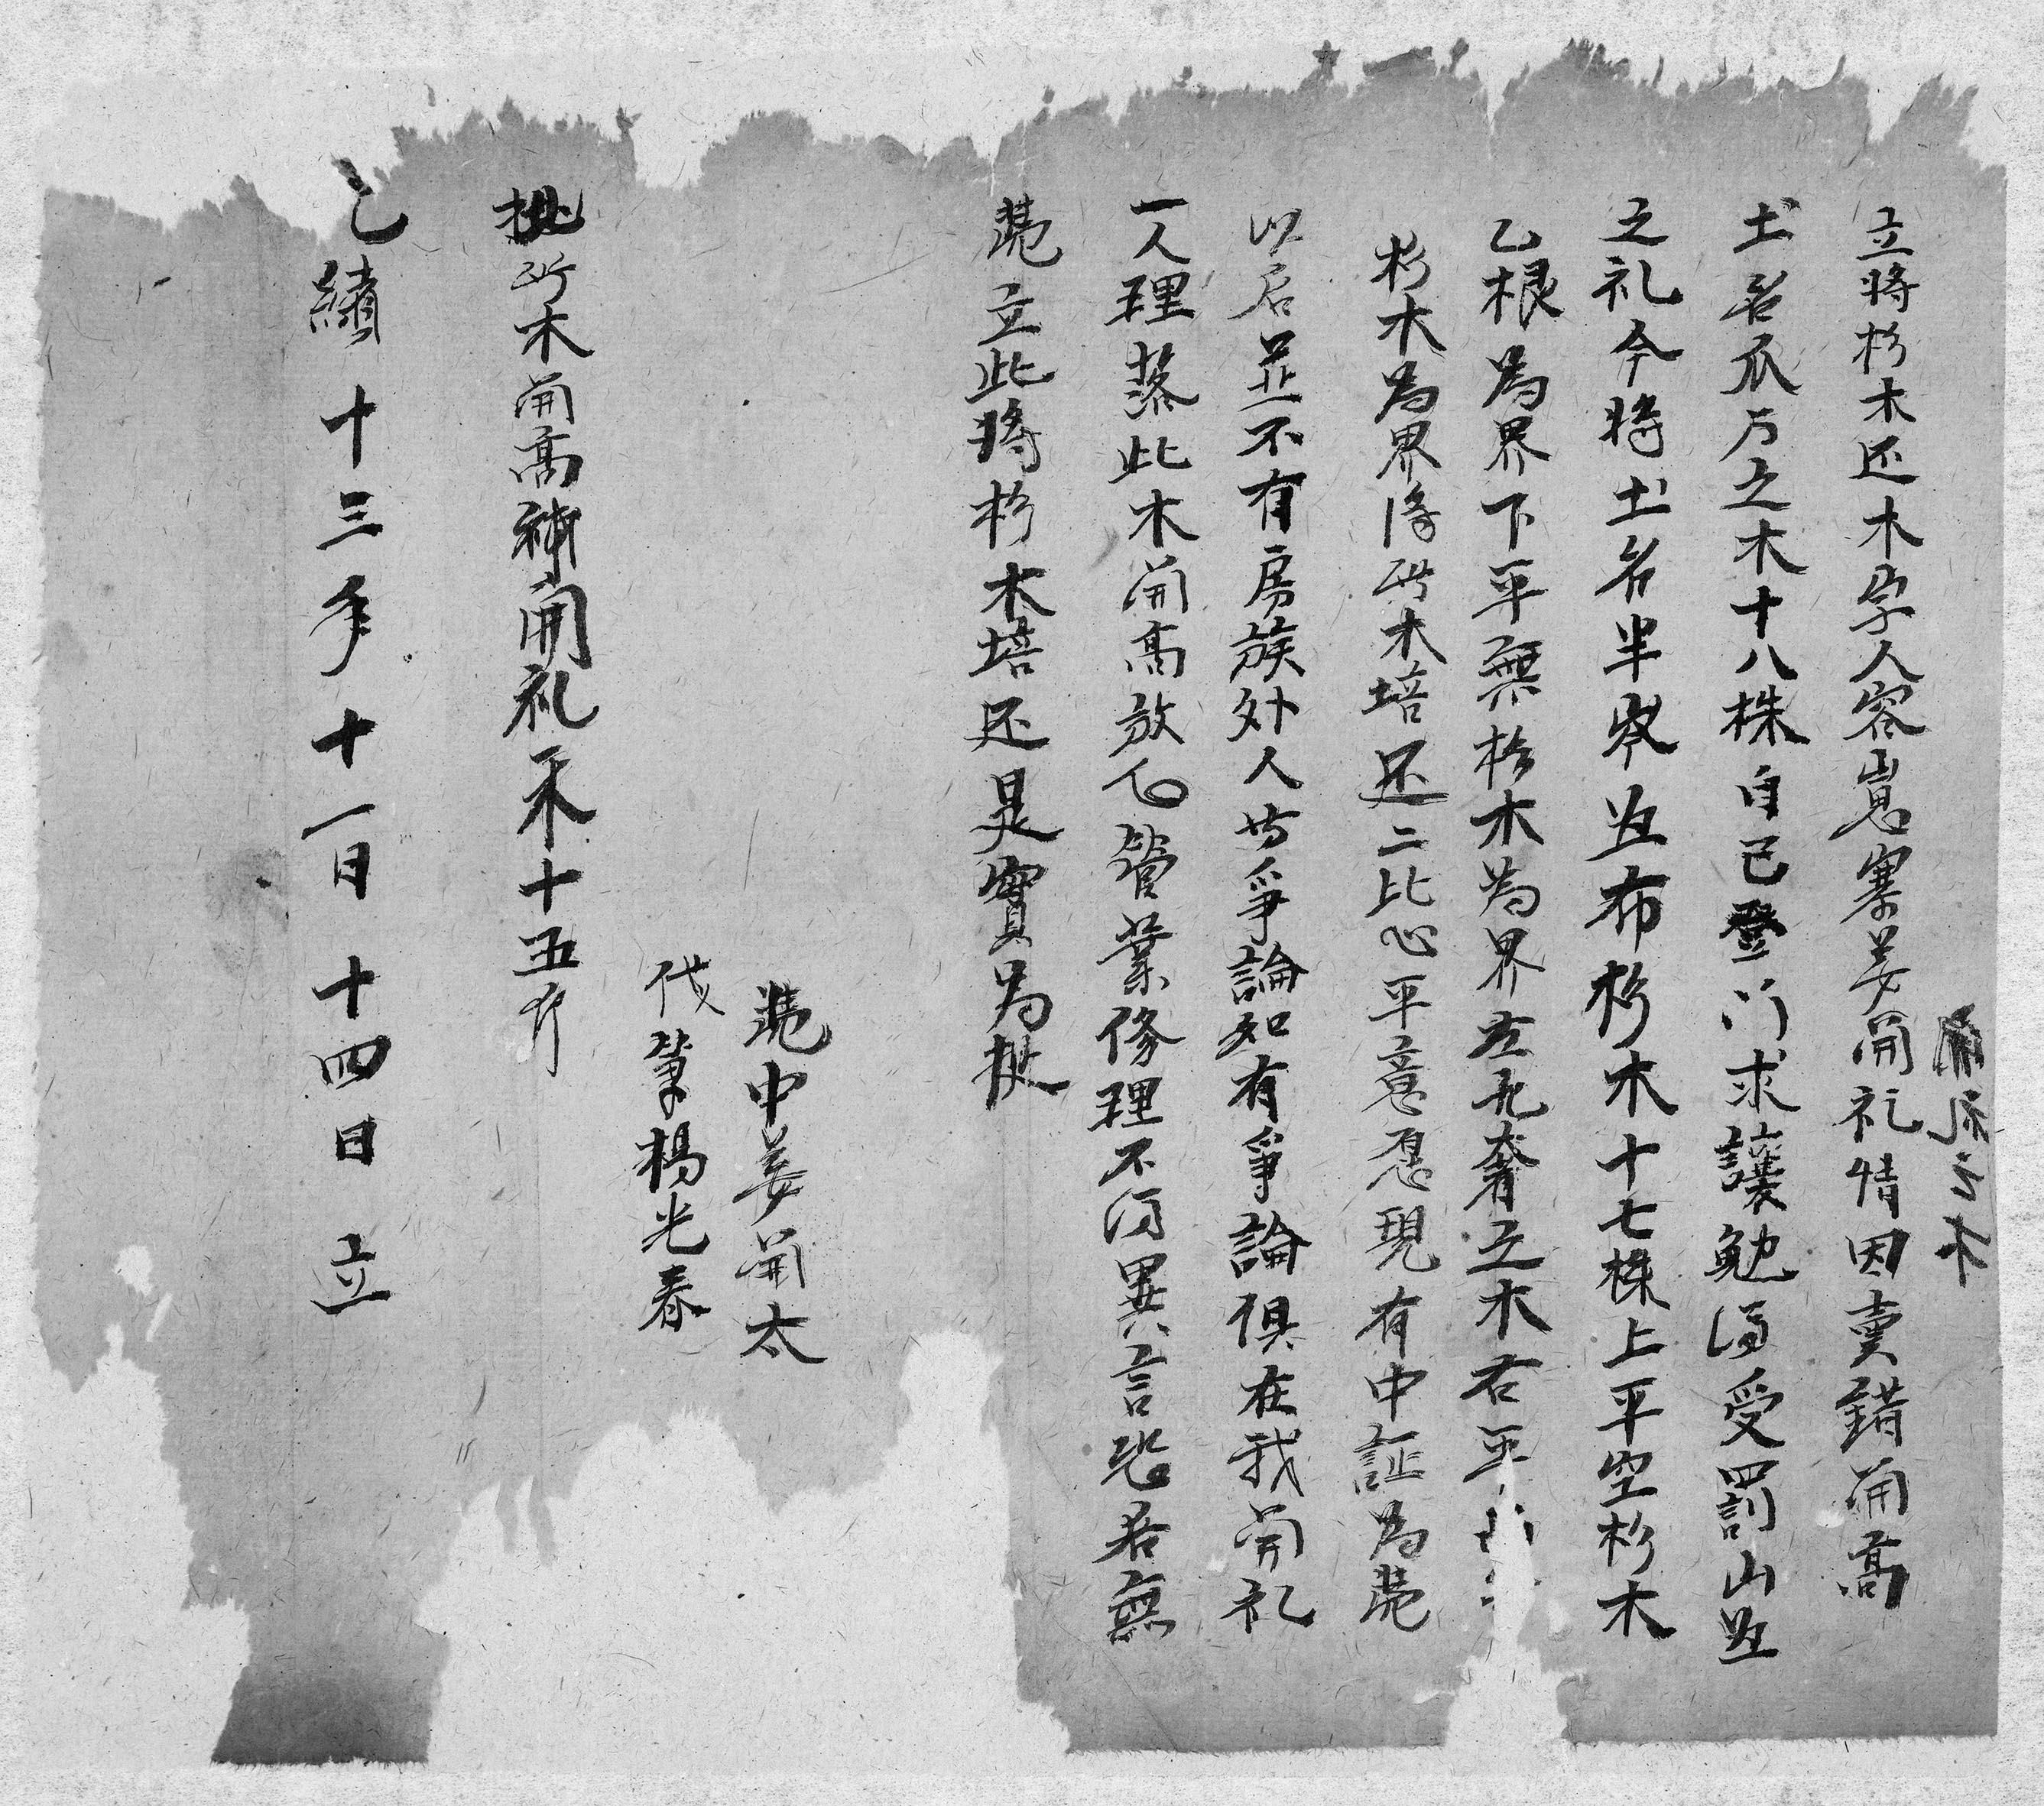 之木
立將杉木还木字人容嵩寨姜開礼情因賣錯開高
土名爪方之木十八株自己登门求讓勉得受罰山並
之礼今將土名半岑並布杉木十七株上平空杉木
乙根為界下平無杉木為界左九奢立木右平
杉木為界係此木培还二比心平意愿現有中証為凴
以后並不有房族外人芳爭論如有爭論俱在我開礼
一人理落此木開高放心管業修理不得異言恐若無
凴立此將杉木培还是實為批
凴中姜開太
代筆楊光春
批所木開高補開礼禾十五斤
乙續十三年十一月十四日立